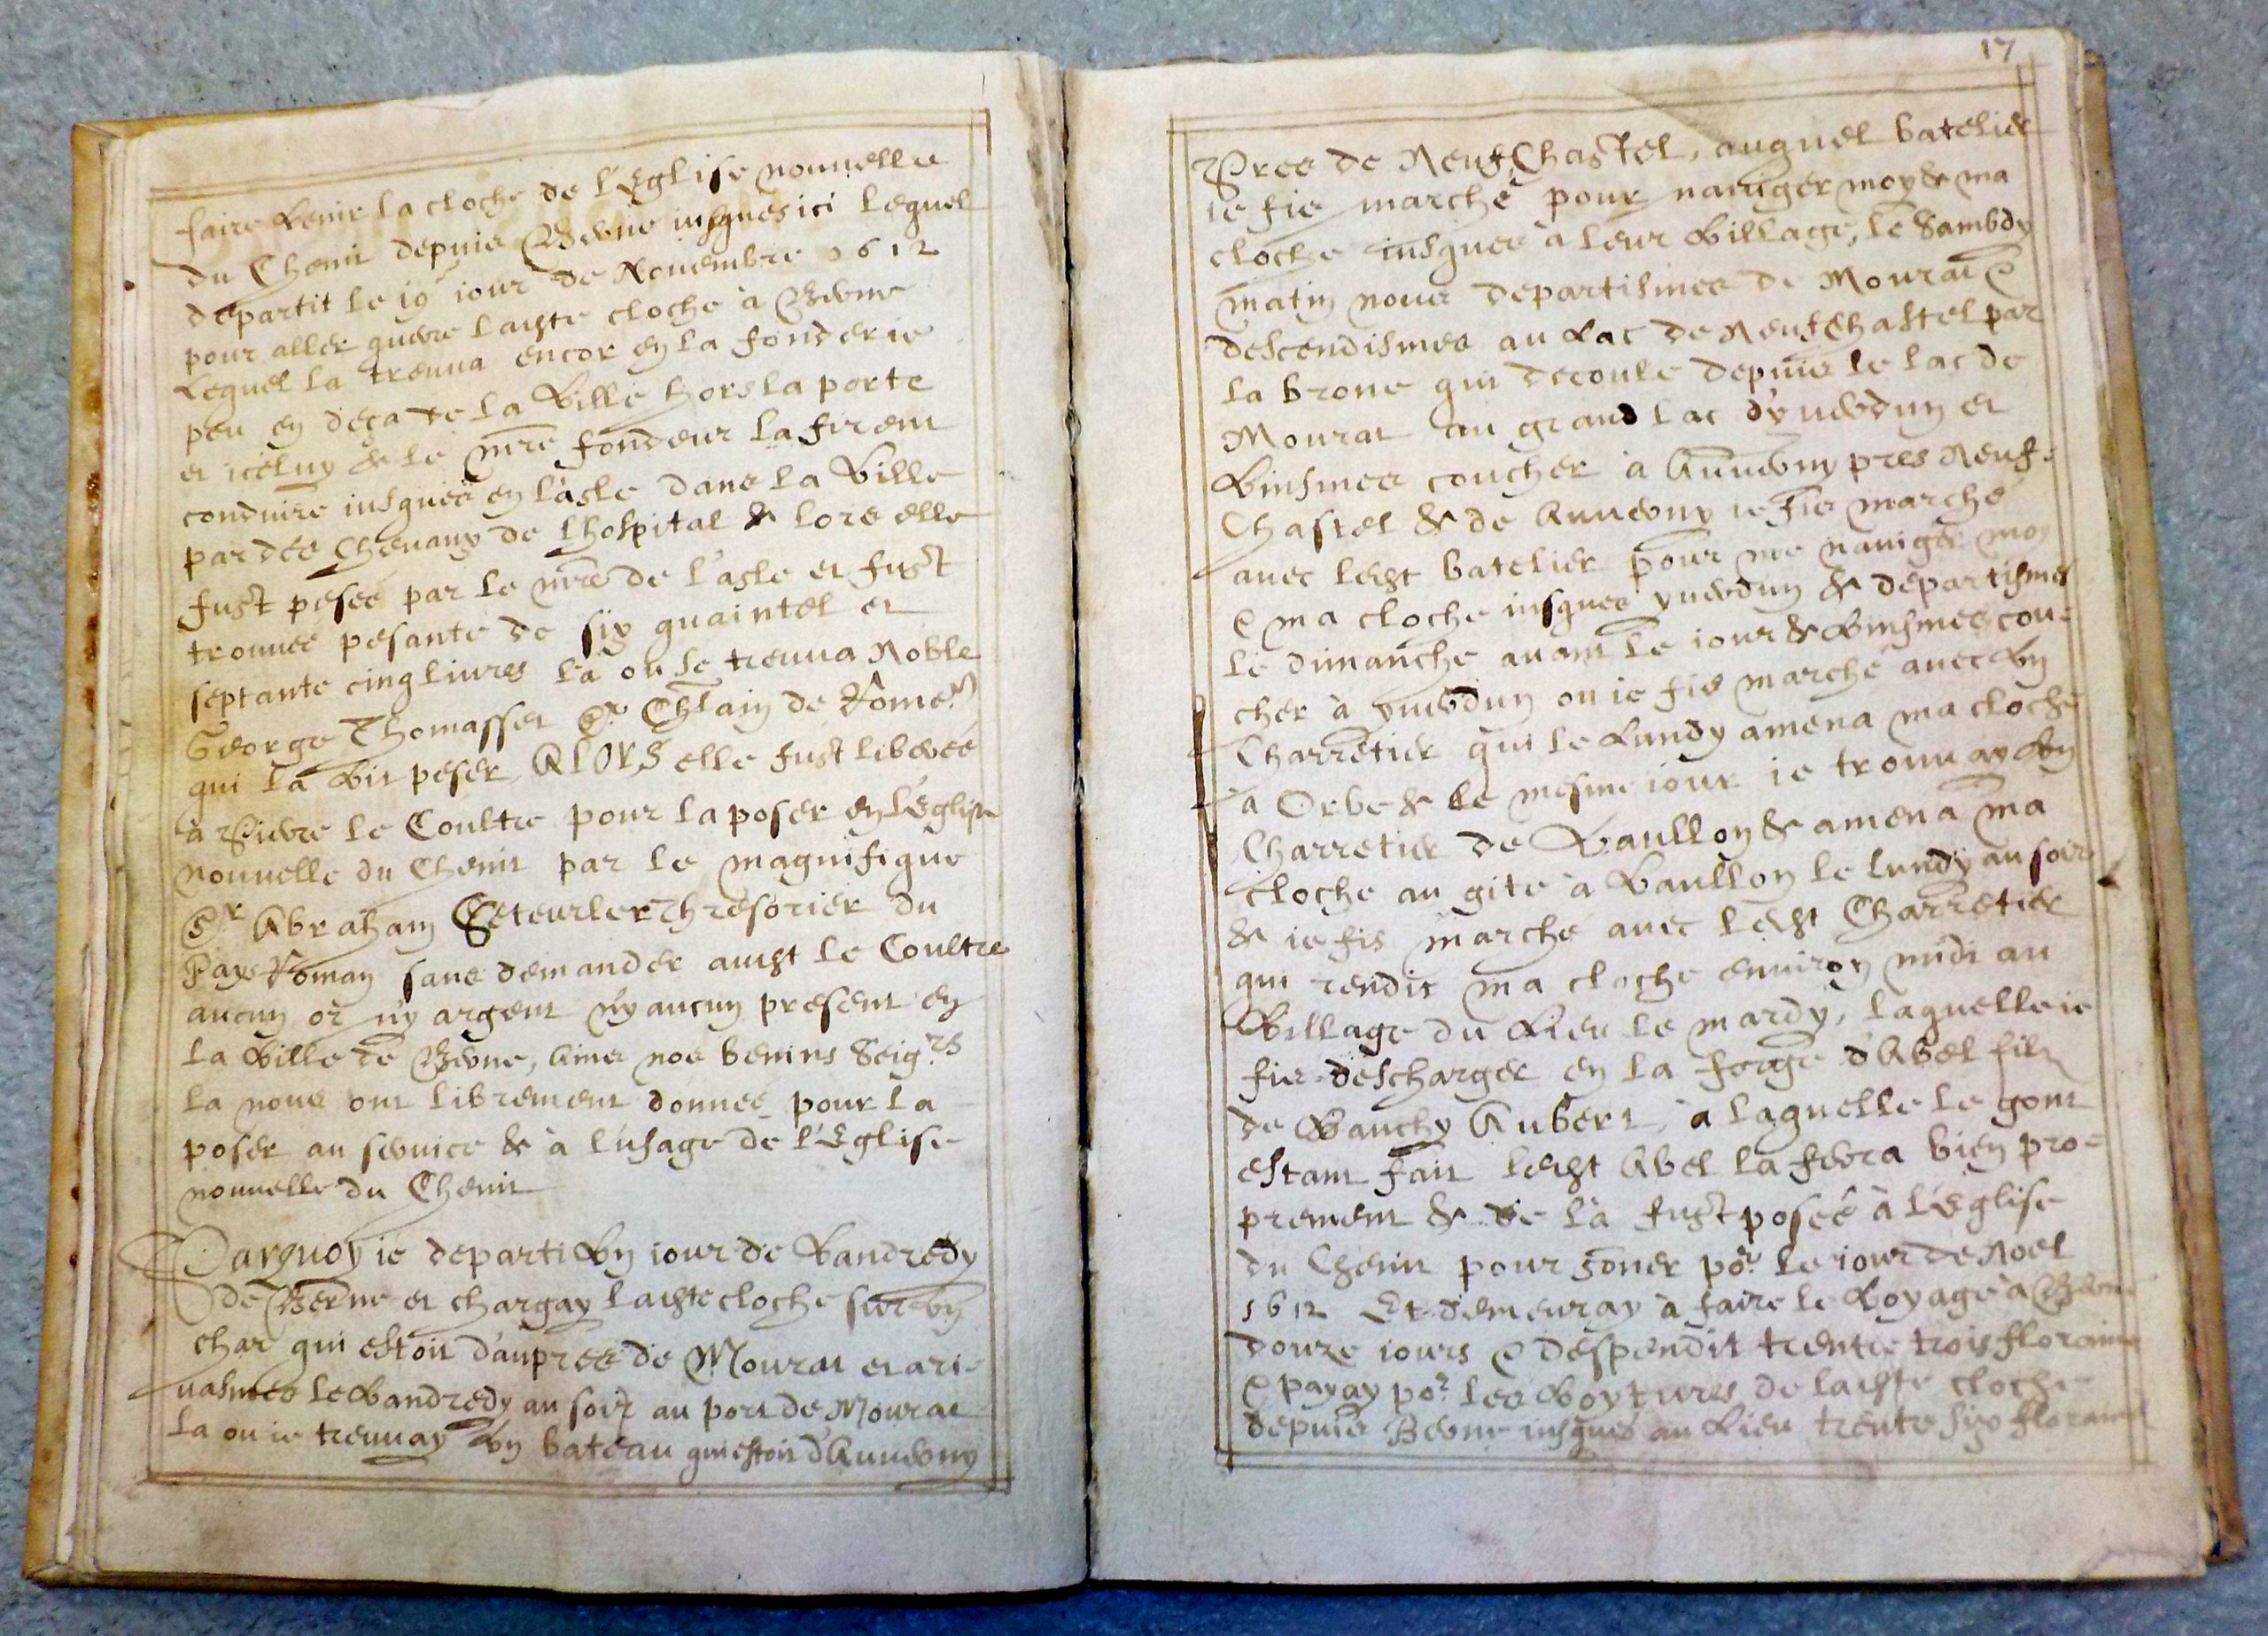 faire venir la cloche de l'Eglise nouuelle
du Chenit depuis Berne iusques ici lequel
departit le 19 iour de Nouembre 1612
pour aller querre ladite cloche à Berne
Lequel la treuua encor en la fonderie
peu en deça de la Ville hors la porte
et iceluy & le mre fondeur la firent
conduire iusques en l'asle dans la Ville
par des Cheuaux de Lhospital & lors elle
fust pesee par le mre de l'asle et fust
trouuee pesante de six quaintel et
septante cinq liures là ou se treuua Noble
George Thomasset Sr Chlain de Rome.m
qui la vit peser, ALORS elle fust liberee
à Pierre le Coultre pour la poser en l'Eglise
nouuelle du Chenit par le magnifique
Sr Abraham Steturler Thresorier du
Pays Roman sans demander audit Le Coultre
aucun or ny argent ny aucun present en
la Ville de Berne, Ains nos benins Seigrs
la nous ont librement donnee pour la
poser au seruice & à l'usage de l'Eglise
nouuelle du Chenit
Parquoy ie departi vn iour de Vandredy
de Berne et chargay ladite cloche sur vn
char qui estoit d'aupres de Mourat et ari-
uasmes le Vandredy au soir au port de Mourat
la ou ie treuuay vn bateau qui estoit d'Auuerny
17
Pres de NeufChastel, auquel batelier
ie fis marché pour nauiger moy & ma
cloche iusques à leur Village, le Sambdy
matin nous departismes de Mourat &
descendismes au Lac de NeufChastel par
la broue qui decoule depuis le lac de
Mourat au grand lac d'yuerdun et
Vinsmes coucher à Auuerny pres Neuf-
Chastel & de Auuerny ie fis marché
auec ledit batelier pour me nauiger moy
& ma cloche iusques yuerdun & departismes
le dimanche auant le iour & Vinsmes cou-
cher à yuerdun ou ie fis marché auec vn
Charretier qui le Lundy amena ma cloche
à Orbe & le mesme iour ie trouuay vn
Charretier de Vaullon & amena ma
cloche au gite à Vaullon le lundy au soir
& ie fis marché auec ledit Charretier
qui rendit ma cloche enuiron midi au
Village du Lieu le mardy, laquelle ie
fis descharger en la forge d'Abel filz
de Vauchy Aubert, à laquelle le gont
estant fait ledit Abel la ferra bien pro-
prement & de là fust posée à l'Eglise
du Chenit pour soner por le iour de Noel
1612 Et demeuray à faire le Voyage à Berne
douze iours & despendit trente trois florains
& payay por les Voytures de ladite cloche
depuis Berne iusques au Lieu trente six florains